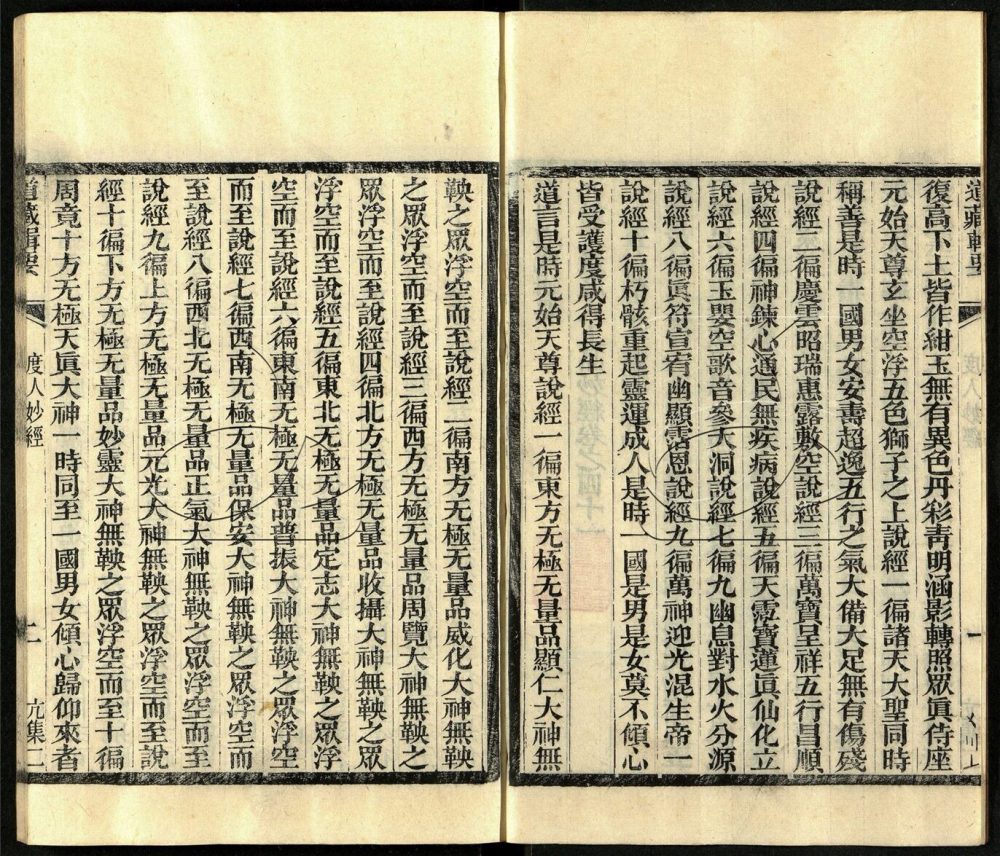 道藏輯要
復高下土皆作紺玉無有異色丹彩青明涵影轉照眾眞侍座
元始天尊玄坐空浮五色獅子之上說經一徧諸天大聖同時
稱善是時一國男女安壽超逸五行之氣大備大足無有傷殘
說經二徧慶雲昭瑞惠露敷空說經三徧萬寶呈祥五行昌順
說經四徧神鍊心通民無疾病說經五徧天雰寶蓮眞仙化立
說經六徧玉嬰空歌音參大洞說經七徧九幽息對水火分源
說經八徧眞符宣宥幽顯霑恩說經九徧萬神迎光混生帝一
說經十徧朽骸重起靈運成人是時一國是男是女莫不傾心
皆受護度咸得長生
道言是時元始天尊說經一徧東方无極无量品顯仁大神無
鞅之眾浮空而至說經二徧南方无極无量品威化大神無鞅
之眾浮空而至說經三徧西方无極无量品周覽大神無鞅之
眾浮空而至說經四徧北方无極无量品收攝大神無鞅之眾
浮空而至說經五徧東北无極无量品定志大神無鞅之眾浮
空而至說經六徧東南无極无量品普振大神無鞅之眾浮空
而至說經七徧西南无極无量品保安大神無鞅之眾浮空而
至說經八徧西北无極无量品正氣大神無鞅之眾浮空而至
說經九徧上方无極无量品元光大神無鞅之眾浮空而至說
經十徧下方无極无量品妙靈大神無鞅之眾浮空而至十徧
周竟十方无極天眞大神一時同至一國男女傾心歸仰來者
道藏輯要 度人妙經 二 亢集二